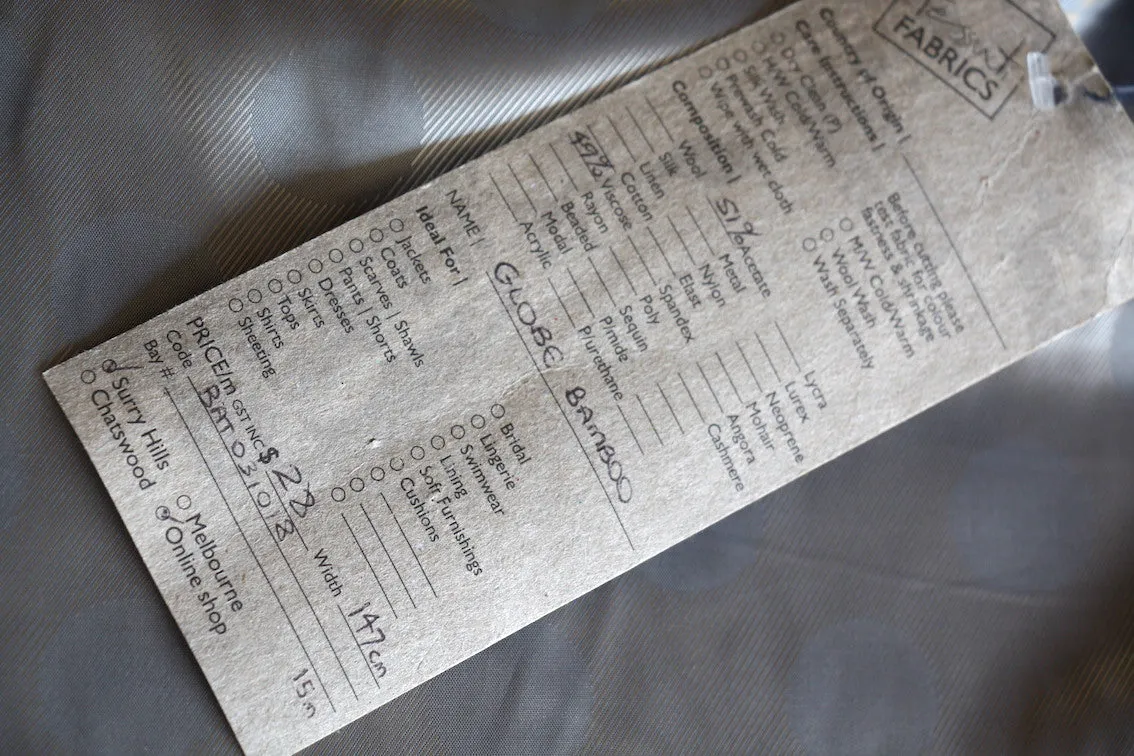 Tessuti
FABRICS
Country of Origin |
Care Instructions |
Before cutting please
test fabric for colour
fastness & shrinkage
○ Dry Clean (P)
○ H/W Cold/Warm
○ Silk Wash
○ Prewash Cold
○ Wipe with wet cloth
○ M/W Cold/Warm
○ Wool Wash
○ Wash Separately
Composition |
Wool 51% Acetate Lycra
Silk Metal Lurex
Linen Nylon Neoprene
Cotton Elast Mohair
49% Viscose Spandex Angora
Rayon Poly Cashmere
Beaded Sequin
Modal Pimide
Acrylic P/urethane
NAME | GLOBE BAMBOO
Ideal For |
○ Jackets ○ Bridal
○ Coats ○ Lingerie
○ Scarves | Shawls ○ Swimwear
○ Pants | Shorts ○ Lining
○ Dresses ○ Soft Furnishings
○ Skirts ○ Cushions
○ Tops ○
○ Shirts ○
○ Sheeting ○
PRICE/m GST INC $28 Width 147cm
Code BAT031018
Bay # 15m
✓ Surry Hills ○ Melbourne
○ Chatswood ✓ Online shop